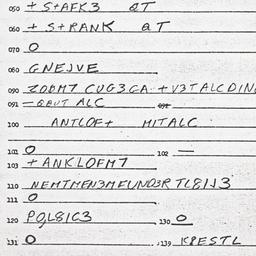 050 + S+AFK3 QT
060 + S+RANK QT
070 0
080 GNEJVE
090 ZODM7 CUG3GA + V3TALCDIN
091 - QBUT ALC 092
100 ANTLOF+ MITALC
101 0 102 —
103 + ANKLOFM7
110 NEMTMEN3MEUNO3R TL8IJ3
111 0
120 PQL8IC3 130 0
131 0 139 KPESTL